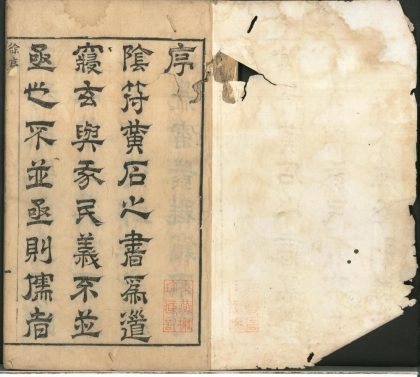 序
陰符黃石之書爲道
寢玄與民義不並
亟也不並亟則儒者
徐序